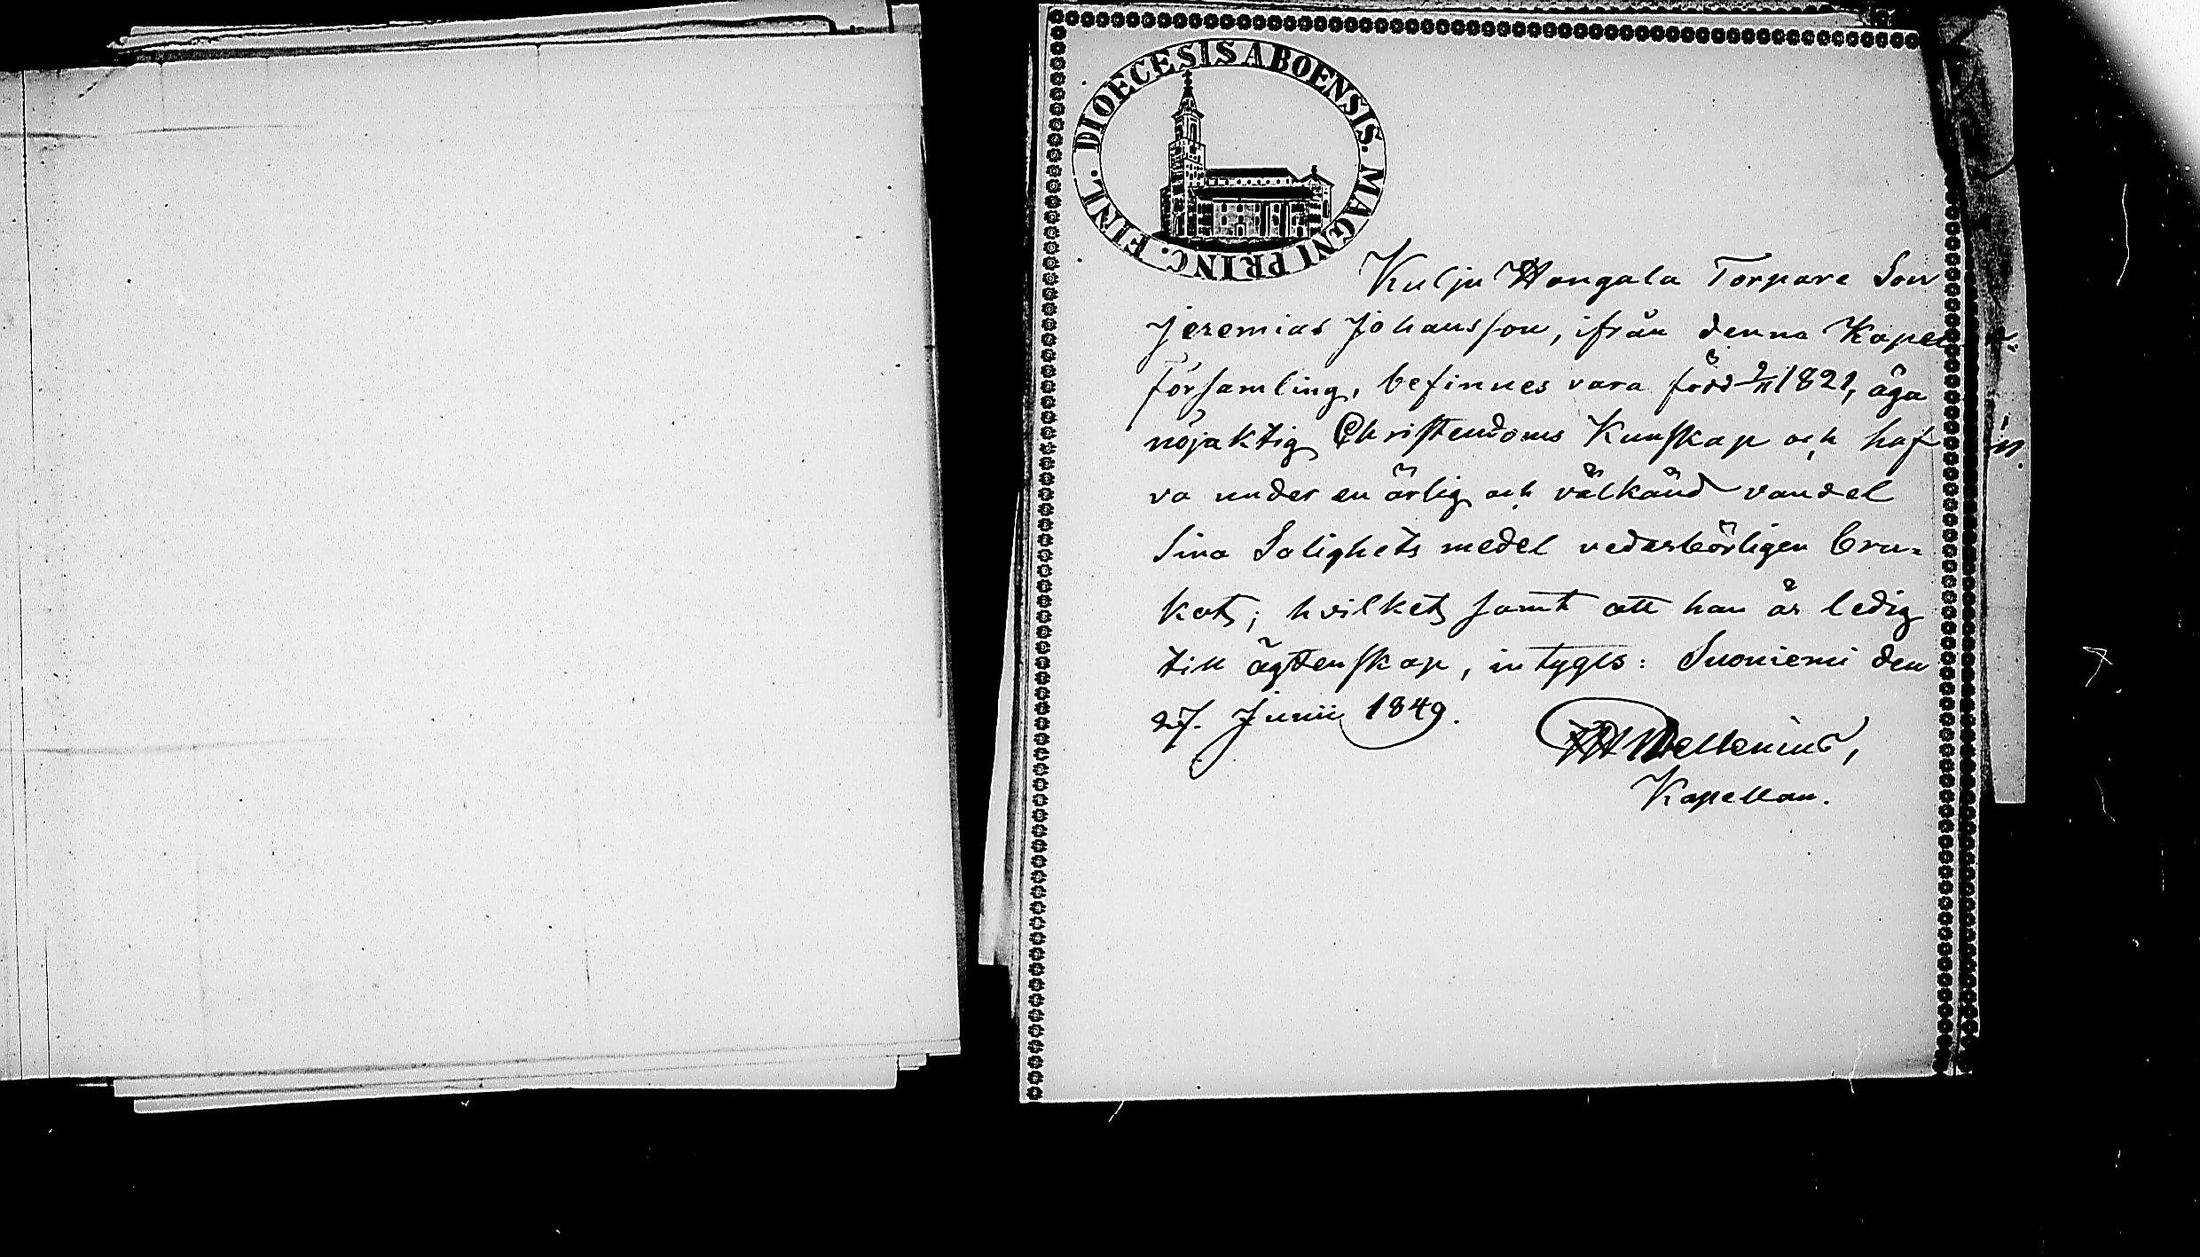 DIOECESIS ABOENSIS. MAGNI PRINC. FINL.
Kulju Hongala Torpare Son
Jeremias Johansson, ifrån denna Kapel
församling, befinnes vara född 9/11 1821, äga
nöjaktig Christendoms Kunskap och haf
va under en ärlig och välkänd vandel
Sina Salighets medel vederbörligen bru=
kat; hvilket samt att han är ledig
till ägtenskap, intygls: Suoniemi den
27. Junii 1849.
Wellenius,
Kapellan.